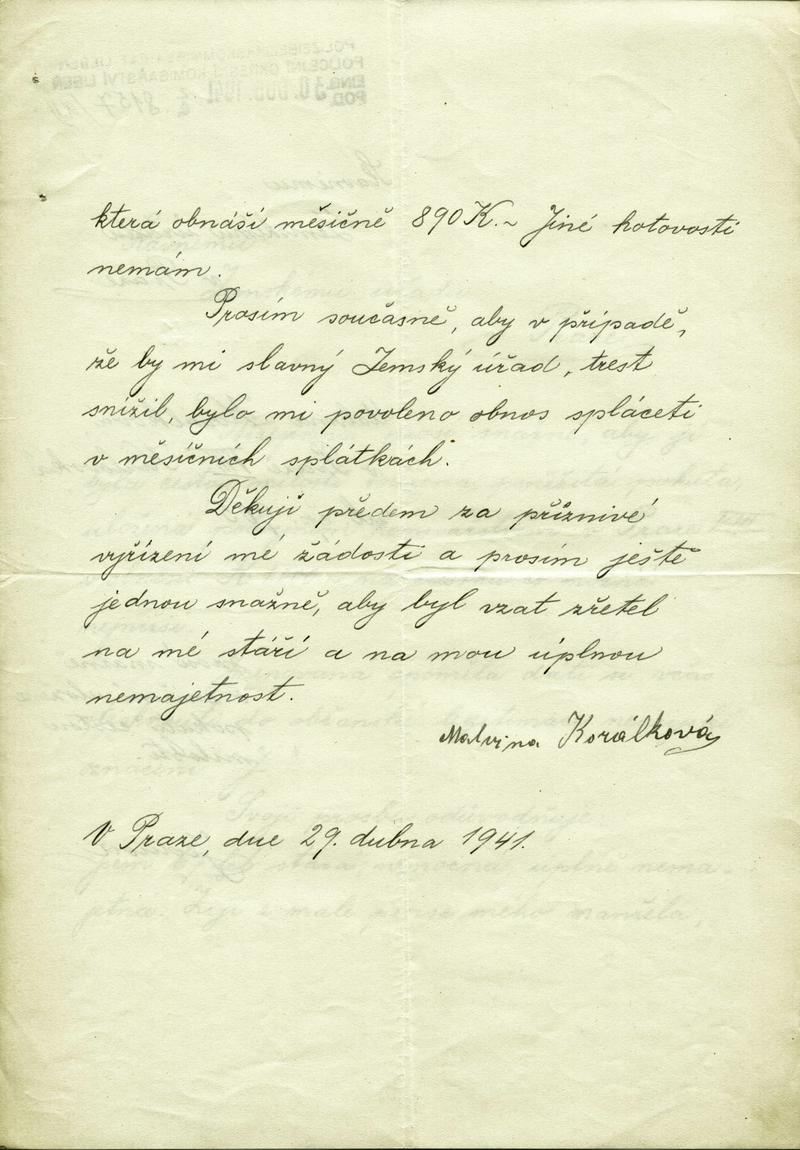 která obnáší měsíčně 890 K.~ Jiné hotovosti
nemám.
Prosím současně, aby v případě,
že by mi slavný Zemský úřad, trest
snížil, bylo mi povoleno obnos spláceti
v měsíčních splátkách.
Děkuji předem za příznivé
vyřízení mé žádosti a prosím ještě
jednou snažně, aby byl vzat zřetel
na mé stáří a na mou úplnou
nemajetnost.
Malvina Korálková
V Praze, dne 29. dubna 1941.